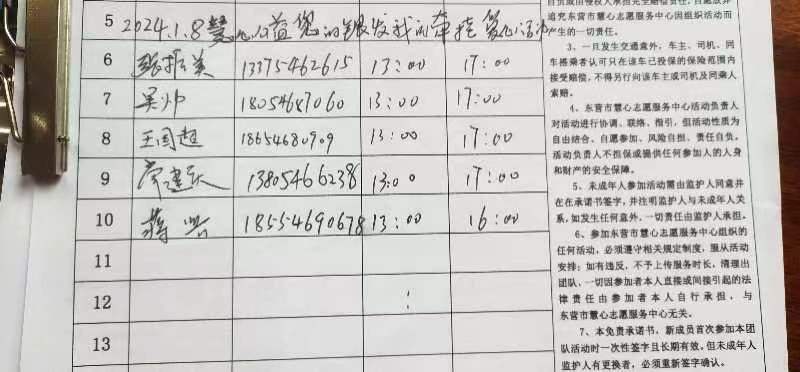 5 2024.1.8 慧心公益 您的银发我的牵挂
6 张振美 13375462615 13:00 17:00
7 吴帅 18054687060 13:00 17:00
8 王国超 18654680909 13:00 17:00
9 常建跃 13805466238 13:00 17:00
10 蒋 18554690678 13:00 16:00
11
12
13
追究东营市慧心志愿服务中心因组织活动而
产生的一切责任。
3、一旦发生交通意外,车主、司机、同
车搭乘者认可只在该车已投保的保险范围内
接受赔偿,不得另行向该车主或司机及同乘人
索赔。
4、东营市慧心志愿服务中心活动负责人
对活动进行协调、联络、指引,但活动性质为
自由结合、自愿参加、风险自担、责任自负。
活动负责人不担保或提供任何参加人的人身
和财产的安全保障。
5、未成年人参加活动需由监护人同意并
在在承诺书签字,并注明监护人与未成年人关
系,如发生任何意外,一切责任由监护人承担。
6、参加东营市慧心志愿服务中心组织的
任何活动,必须遵守相关规定制度,服从活动
安排;如有违反,不予上传服务时长,清理出
团队,一切因参加者本人直接或间接引起的法
律责任由参加者本人自行承担,与
东营市慧心志愿服务中心无关。
7、本免责承诺书,新成员首次参加本团
队活动时一次性签字且长期有效,但未成年人
监护人有更换者,必须重新签字确认。